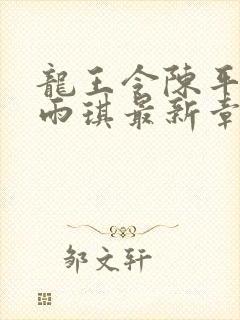 龍王令陈平
雨琪最新章
邹文轩